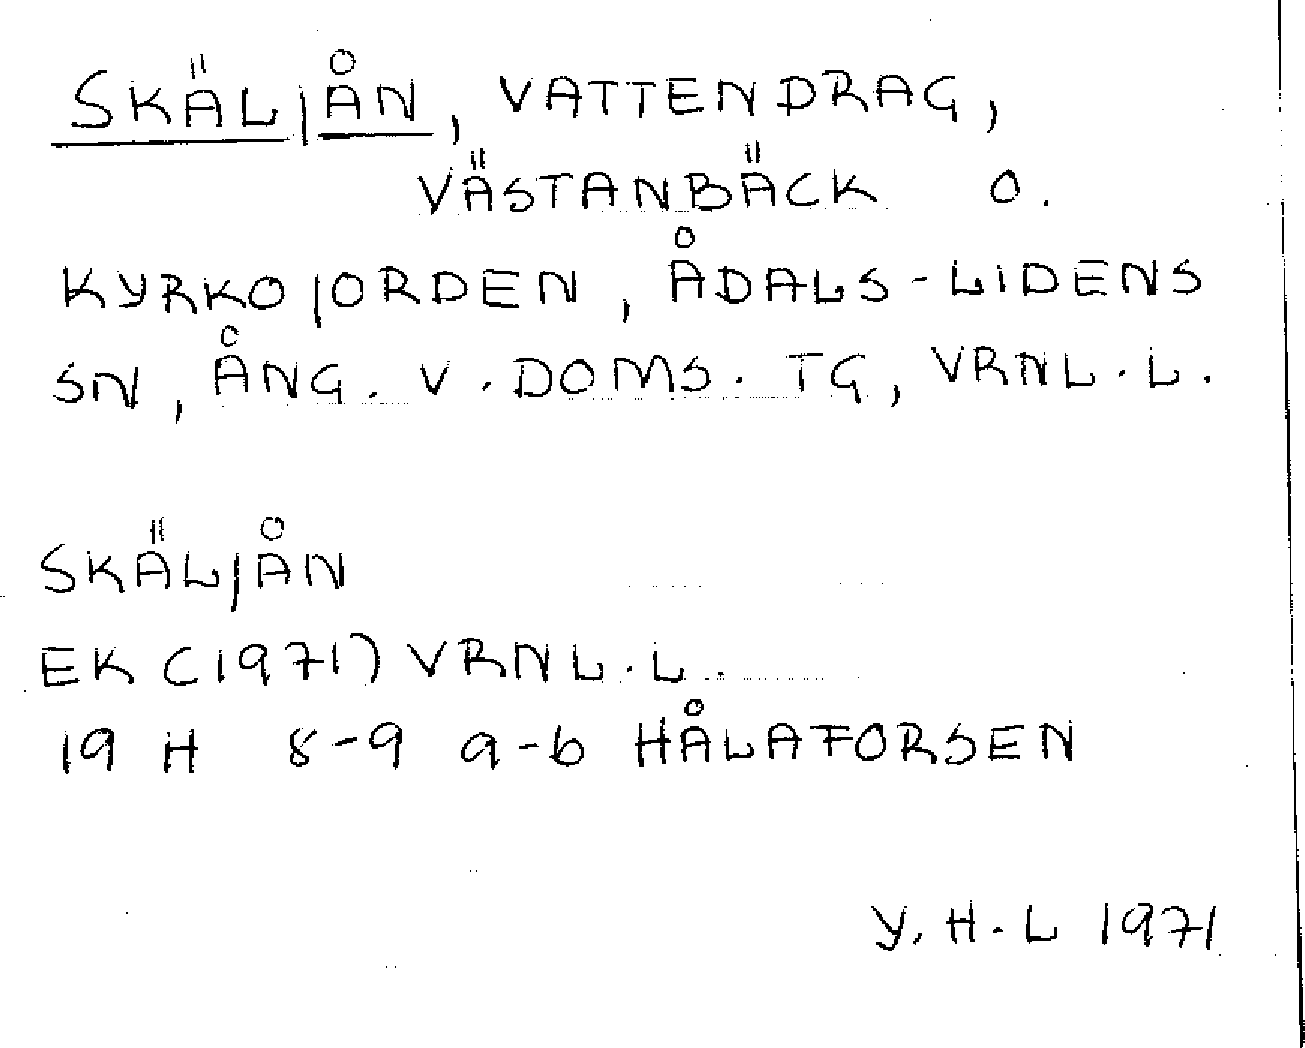 SKÄLJÅN, VATTENDRAG,
VÄSTANBÄCK O.
KYRKOJORDEN, ÅDALS-LIDENS
SN, ÅNG. V. DOMS. TG, VRNL.L.
SKÄLJÅN
EK (1971) VRNL.L.
19 H 8-9 a-b HÅLAFORSEN
Y.H.L 1971